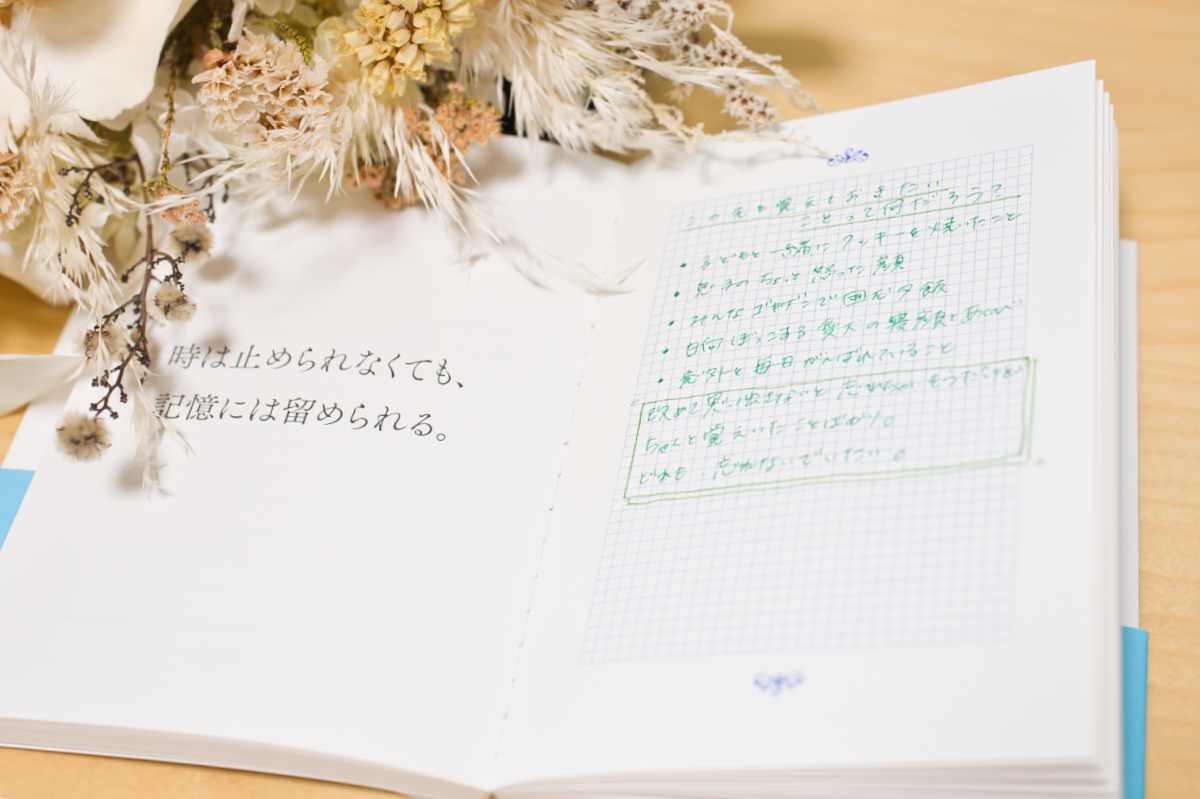 時は止められなくても、
記憶には留められる。
この先も覚えておきたい
ことって何だろう?
・子どもと一緒にクッキーを焼いたこと
・息子のちょっと怒った顔
・みんなゴキゲンで囲む夕飯
・日向ぼっこする愛犬の寝顔とあくび
・意外と毎日がんばれていること
改めて思い出さないと忘れちゃいそうだけど
ちゃんと覚えていたことばかり。
どれも、忘れないでいたい。